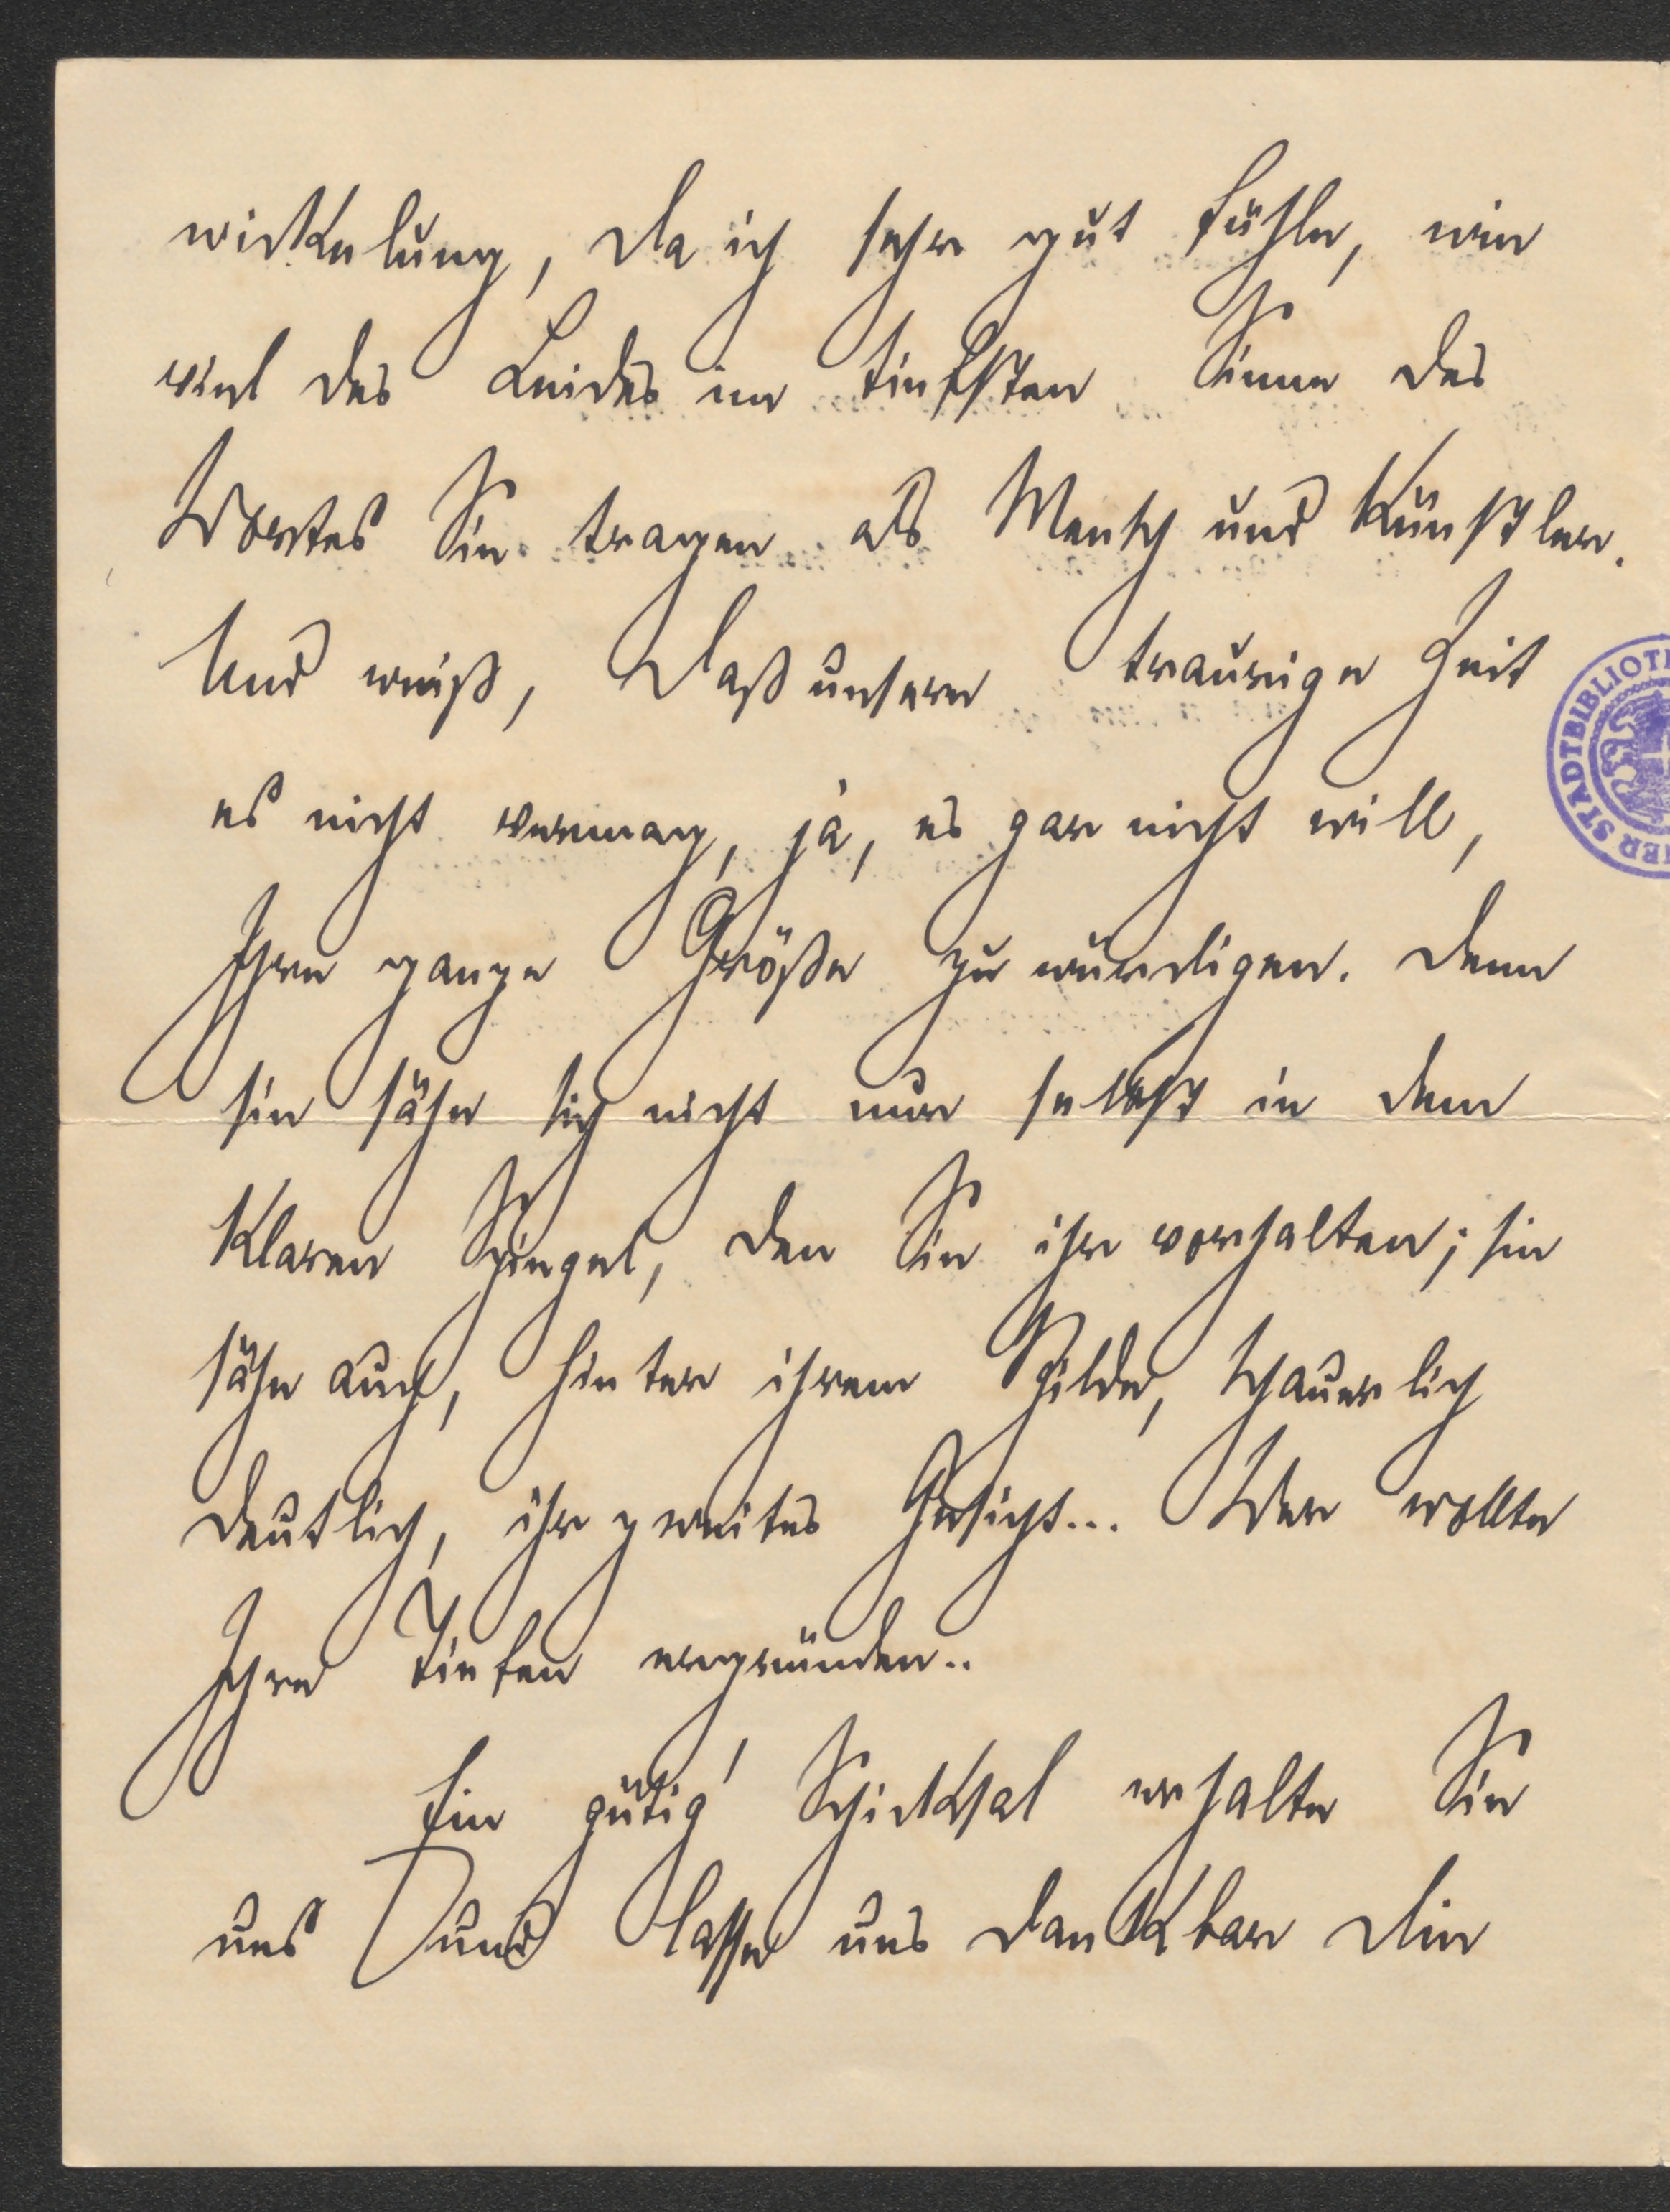 wickelung, da ich sehr gut fühle, wie
viel des Leides im tiefsten Sinne des
Wortes Sie tragen als Mensch und Künstler.
Und weiß, daß unsere traurige Zeit
es nicht vermag, ja, es gar nicht will,
Ihre ganze Größe zu würdigen. Denn
sie sähe sich nicht nur selbst in dem
klaren Spiegel, den Sie ihr vorhalten; sie
sähe auch, hinter ihrem Schilde, schauerlich
deutlich, ihr zweites Gesicht... Wer wollte
Ihre Tiefen ergründen..
Ein gütig' Schicksal erhalte Sie
uns und lasse uns dankbar die
STADTBIBLIOT